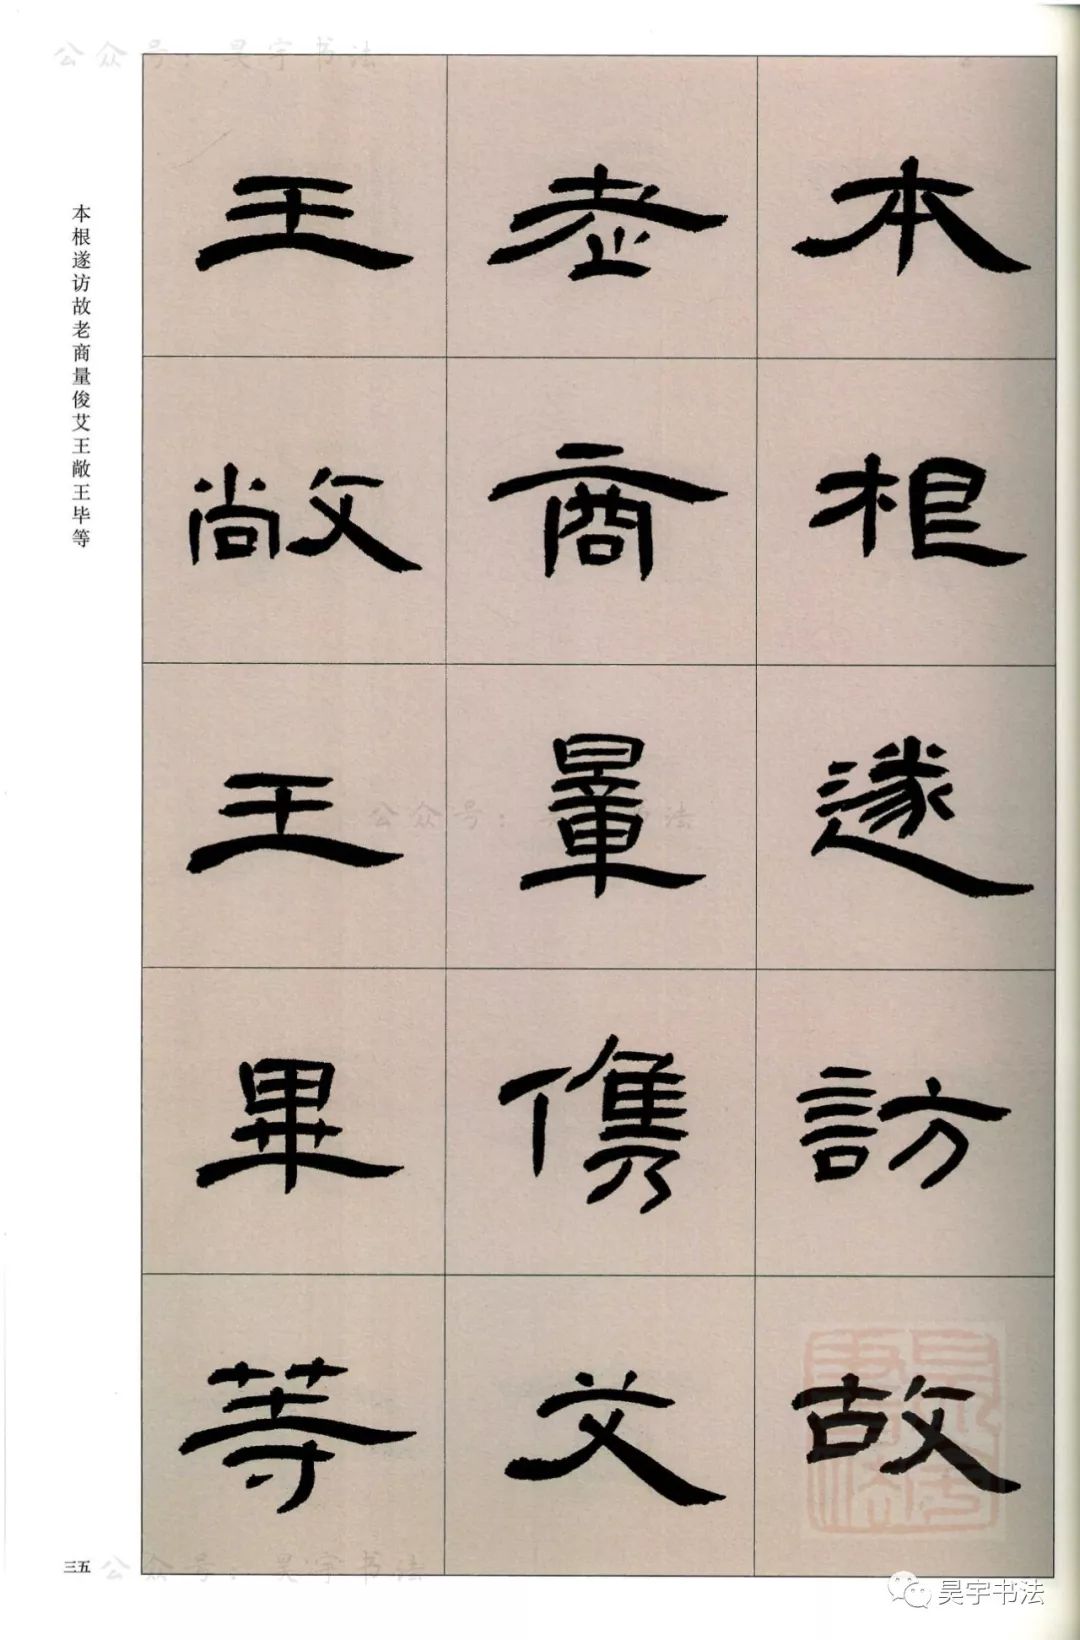 公众号：昊宇书法
本根遂訪故
老商量儁艾
王敞王畢等
本根遂访故老商量俊艾王敞王毕等
公众号：昊宇书法
三五
公众号：昊宇书法
昊宇书法